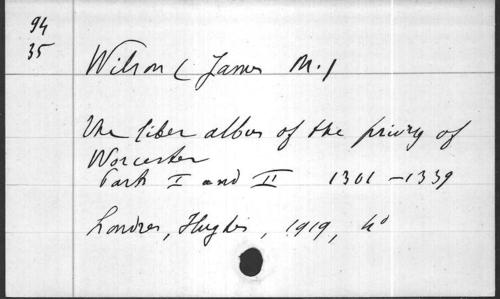 94
35
Wilson (James M.)
The liber albus of the priory of
Worcester
Parts I and II 1301-1339
Londres, Hughes, 1919, 4°